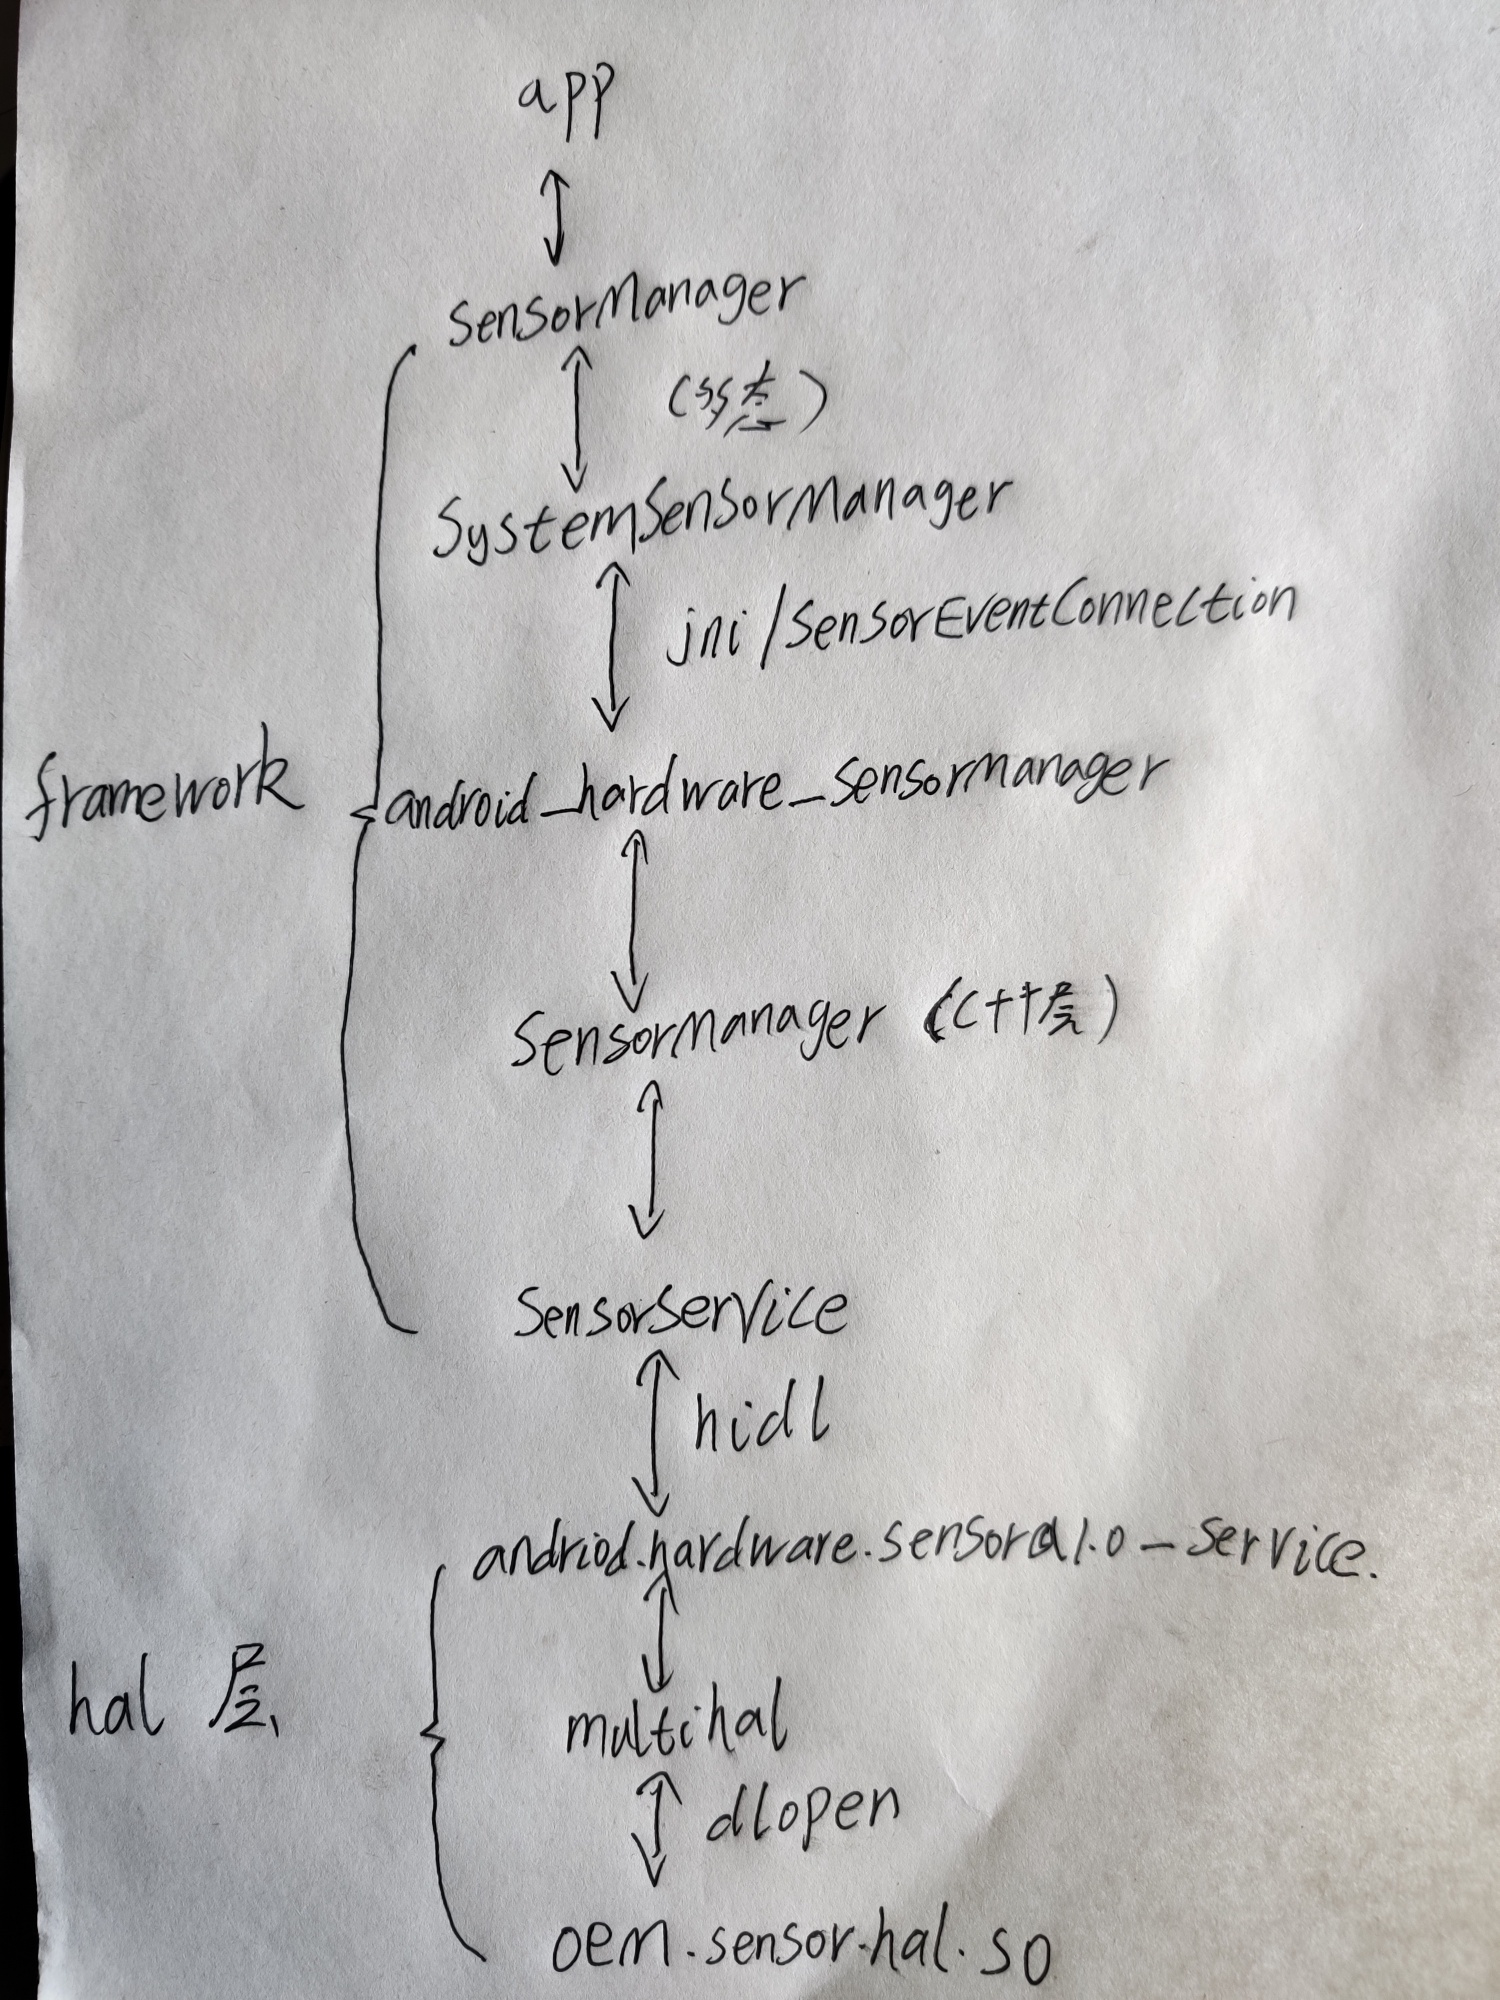 app
SensorManager
SystemSensorManager
jni/SensorEventConnection
framework
android_hardware_SensorManager
SensorManager (C++层)
SensorService
hidl
andriod.hardware.sensor@1.0-service.
hal 层
multihal
dlopen
oem.sensor.hal.so